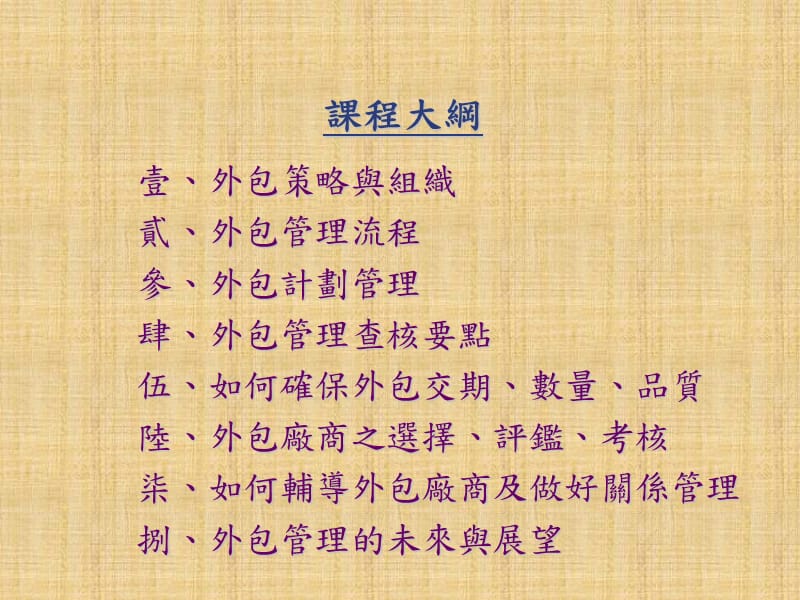 課程大綱
壹、外包策略與組織
貳、外包管理流程
參、外包計劃管理
肆、外包管理查核要點
伍、如何確保外包交期、數量、品質
陸、外包廠商之選擇、評鑑、考核
柒、如何輔導外包廠商及做好關係管理
捌、外包管理的未來與展望